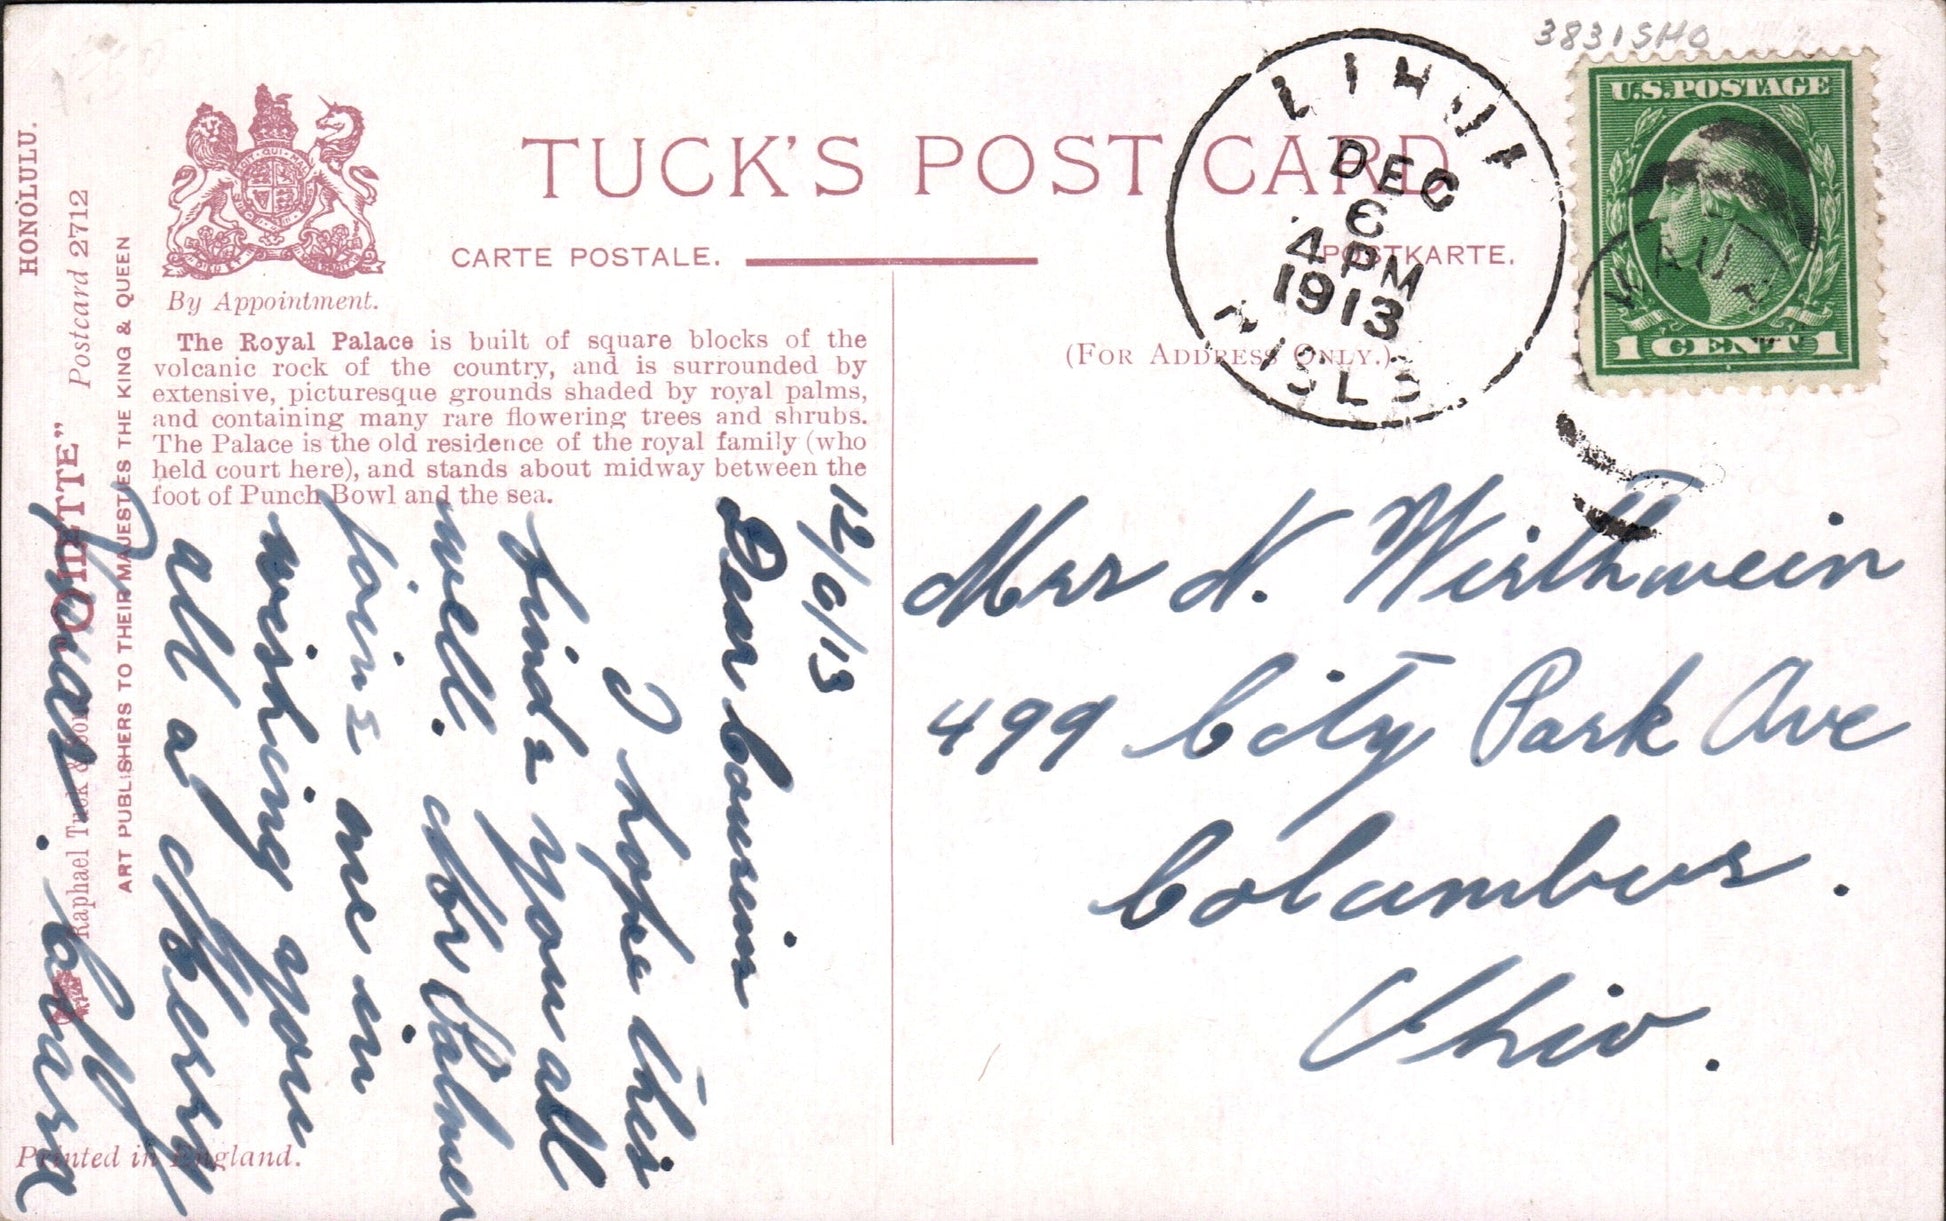 HONOLULU.
"OILETTE" Postcard 2712
Raphael Tuck & Sons
ART PUBLISHERS TO THEIR MAJESTIES THE KING & QUEEN
TUCK'S POST CARD
CARTE POSTALE.
POSTKARTE.
By Appointment.
The Royal Palace is built of square blocks of the
volcanic rock of the country, and is surrounded by
extensive, picturesque grounds shaded by royal palms,
and containing many rare flowering trees and shrubs.
The Palace is the old residence of the royal family (who
held court here), and stands about midway between the
foot of Punch Bowl and the sea.
(FOR ADDRESS ONLY.)
12/6/13
Dear Cousin
I hope this
finds you all
well. Dr Palmer
joins me in
wishing you
all a Merry
Printed in England.
3831SHO
DEC
6
4 PM
1913
U.S.POSTAGE
1 CENT 1
Mrs N. Wirthwein
499 City Park Ave
Columbus.
Ohio.